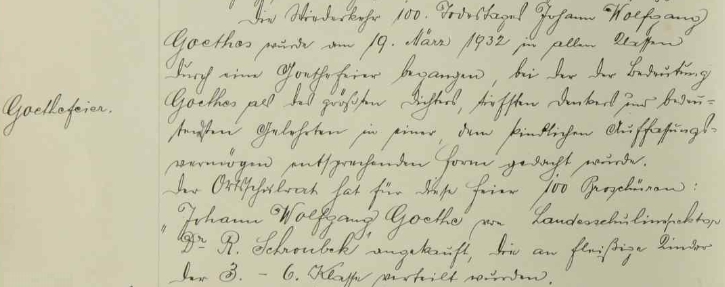 Die Wiederkehr 100. Todestages Johann Wolfgang
Goethes wurde am 19. März 1932 in allen Klassen
durch eine Goethefeier begangen, bei der der Bedeutung
Goethefeier.
Goethes als des größten Dichters, tiefsten Denkers und bedeu-
tensten Gelehrten in einer, dem kindlichen Auffassungs-
vermögen entsprechenden Form gedacht wurde.
Der Ortsschulrat hat für diese Feier 100 Broschüren:
"Johann Wolfgang Goethe" von Landesschulinspektor
Dr R. Schroubek angekauft, die an fleißige Kinder
der 3. - 6. Klasse verteilt wurden.